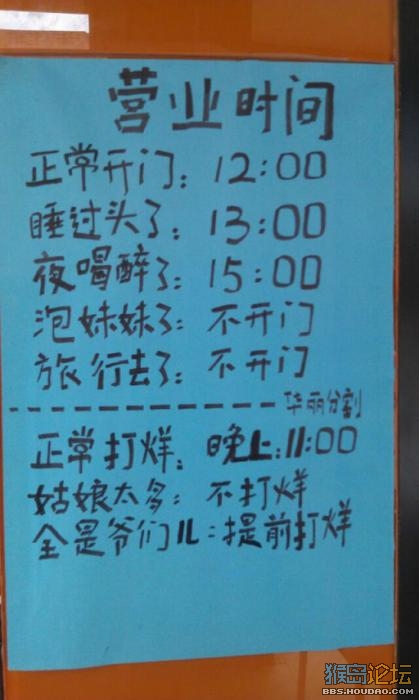 营业时间
正常开门: 12:00
睡过头了: 13:00
夜喝醉了: 15:00
泡妹妹了: 不开门
旅行去了: 不开门
华丽分割
正常打烊: 晚上:11:00
姑娘太多: 不打烊
全是爷们儿: 提前打烊
猴岛论坛
BBS.HOUDAO.COM